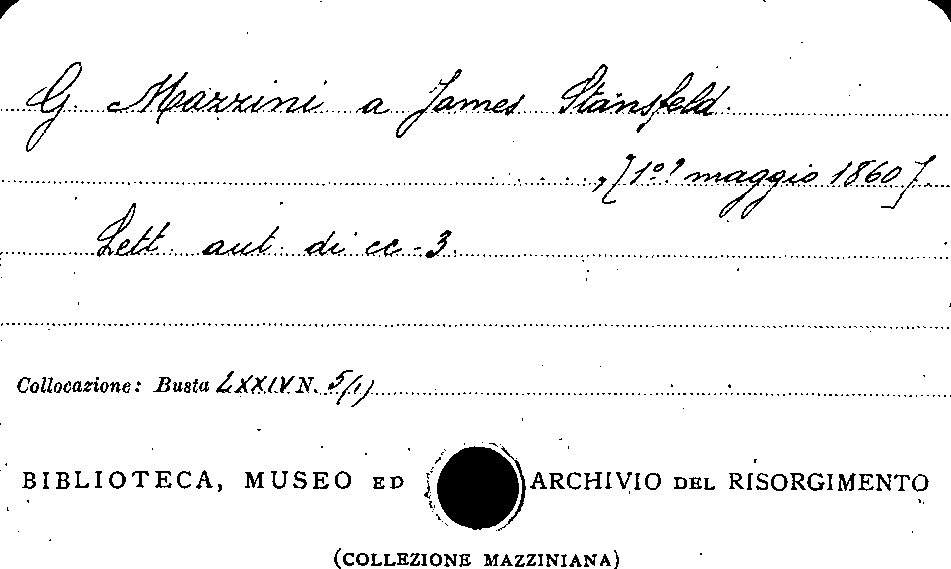 G. Mazzini a James Stansfeld.
, [1º? maggio 1860].
Lett. aut. di cc. 3.
Collocazione: Busta LXXIV N. 5/(1)
BIBLIOTECA, MUSEO ED ARCHIVIO DEL RISORGIMENTO
(COLLEZIONE MAZZINIANA)